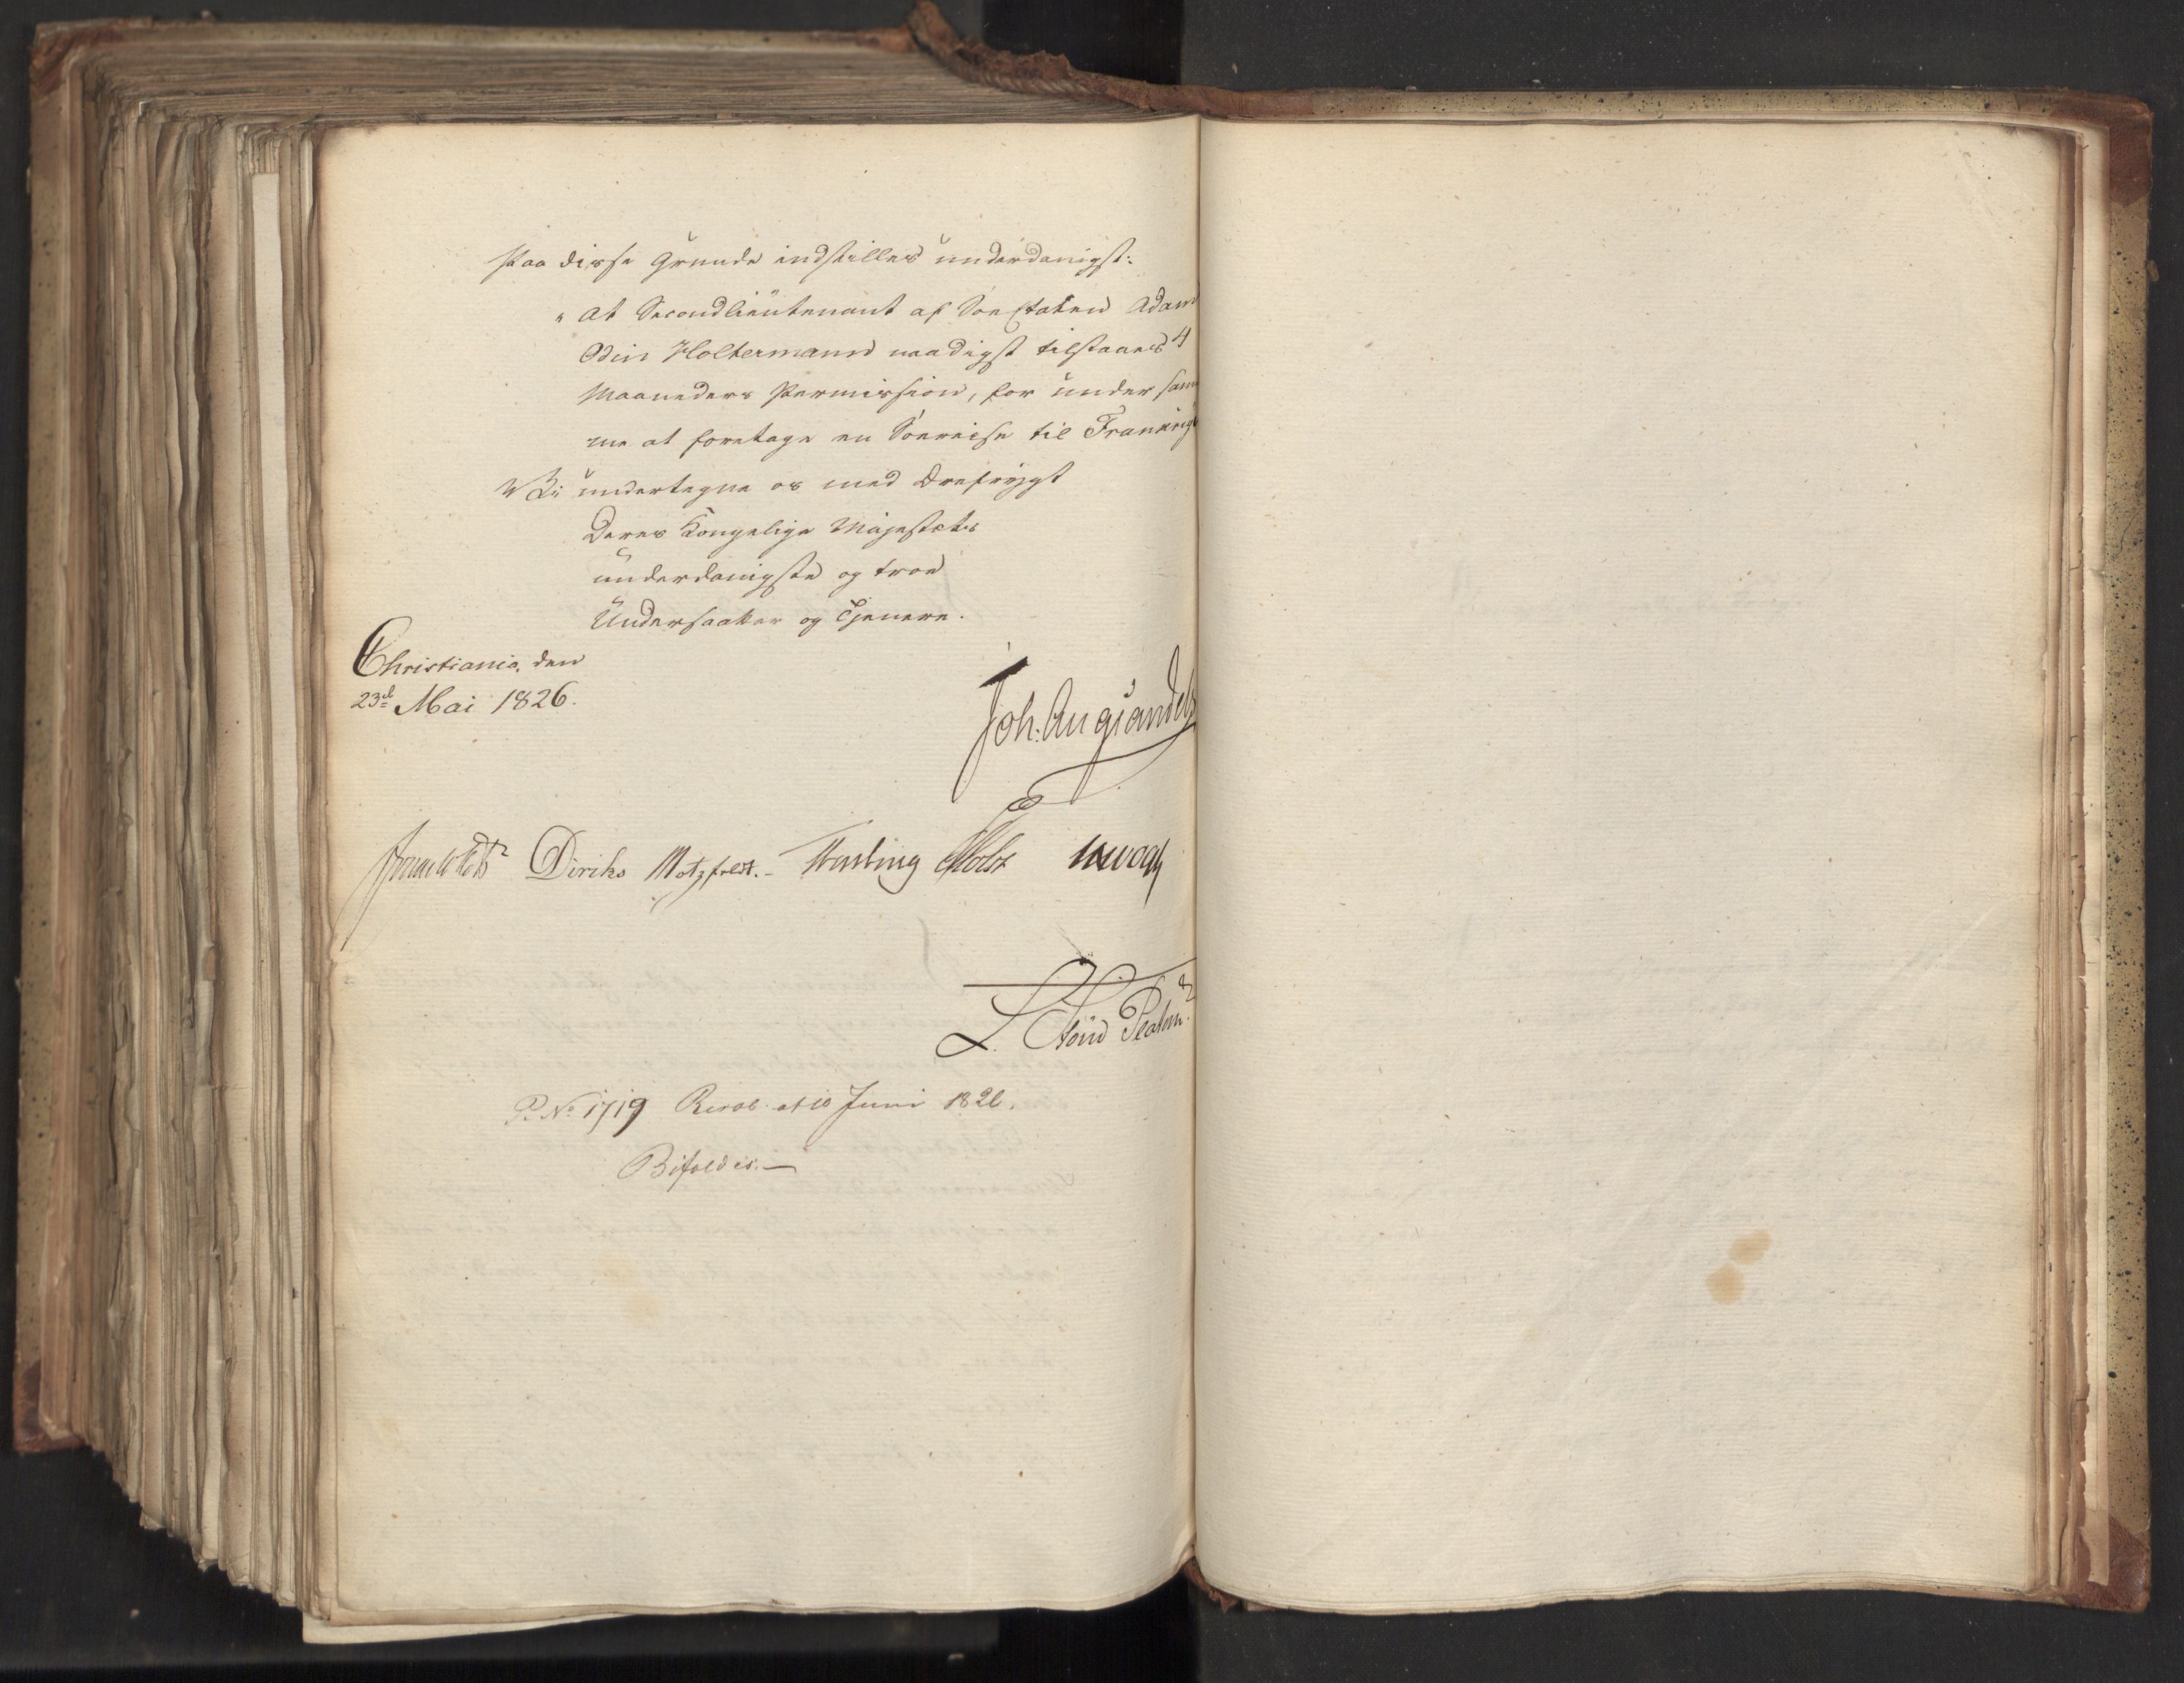 Paa disse Grunde indstilles underdanigst:
"at Secondlieutenant af Søe Etaten Adam
Odin Holtermann naadigst tilstaaes 4
Maaneders Permission, for under sam
me at foretage en Søereise til Frankrig
Vi undertegne os med Ærefrygt
Deres Kongelige Majestæts
underdanigste og troe
Undersaatter og Tjenere.
Christiania, den
23d Mai 1826.
Joh: Aug: Sandels
Diriks Motzfeldt. Fasting Holst
L. Stoud Platou
P. No 1719 Resol. af 10 Juni 1826.
Bifaldes.